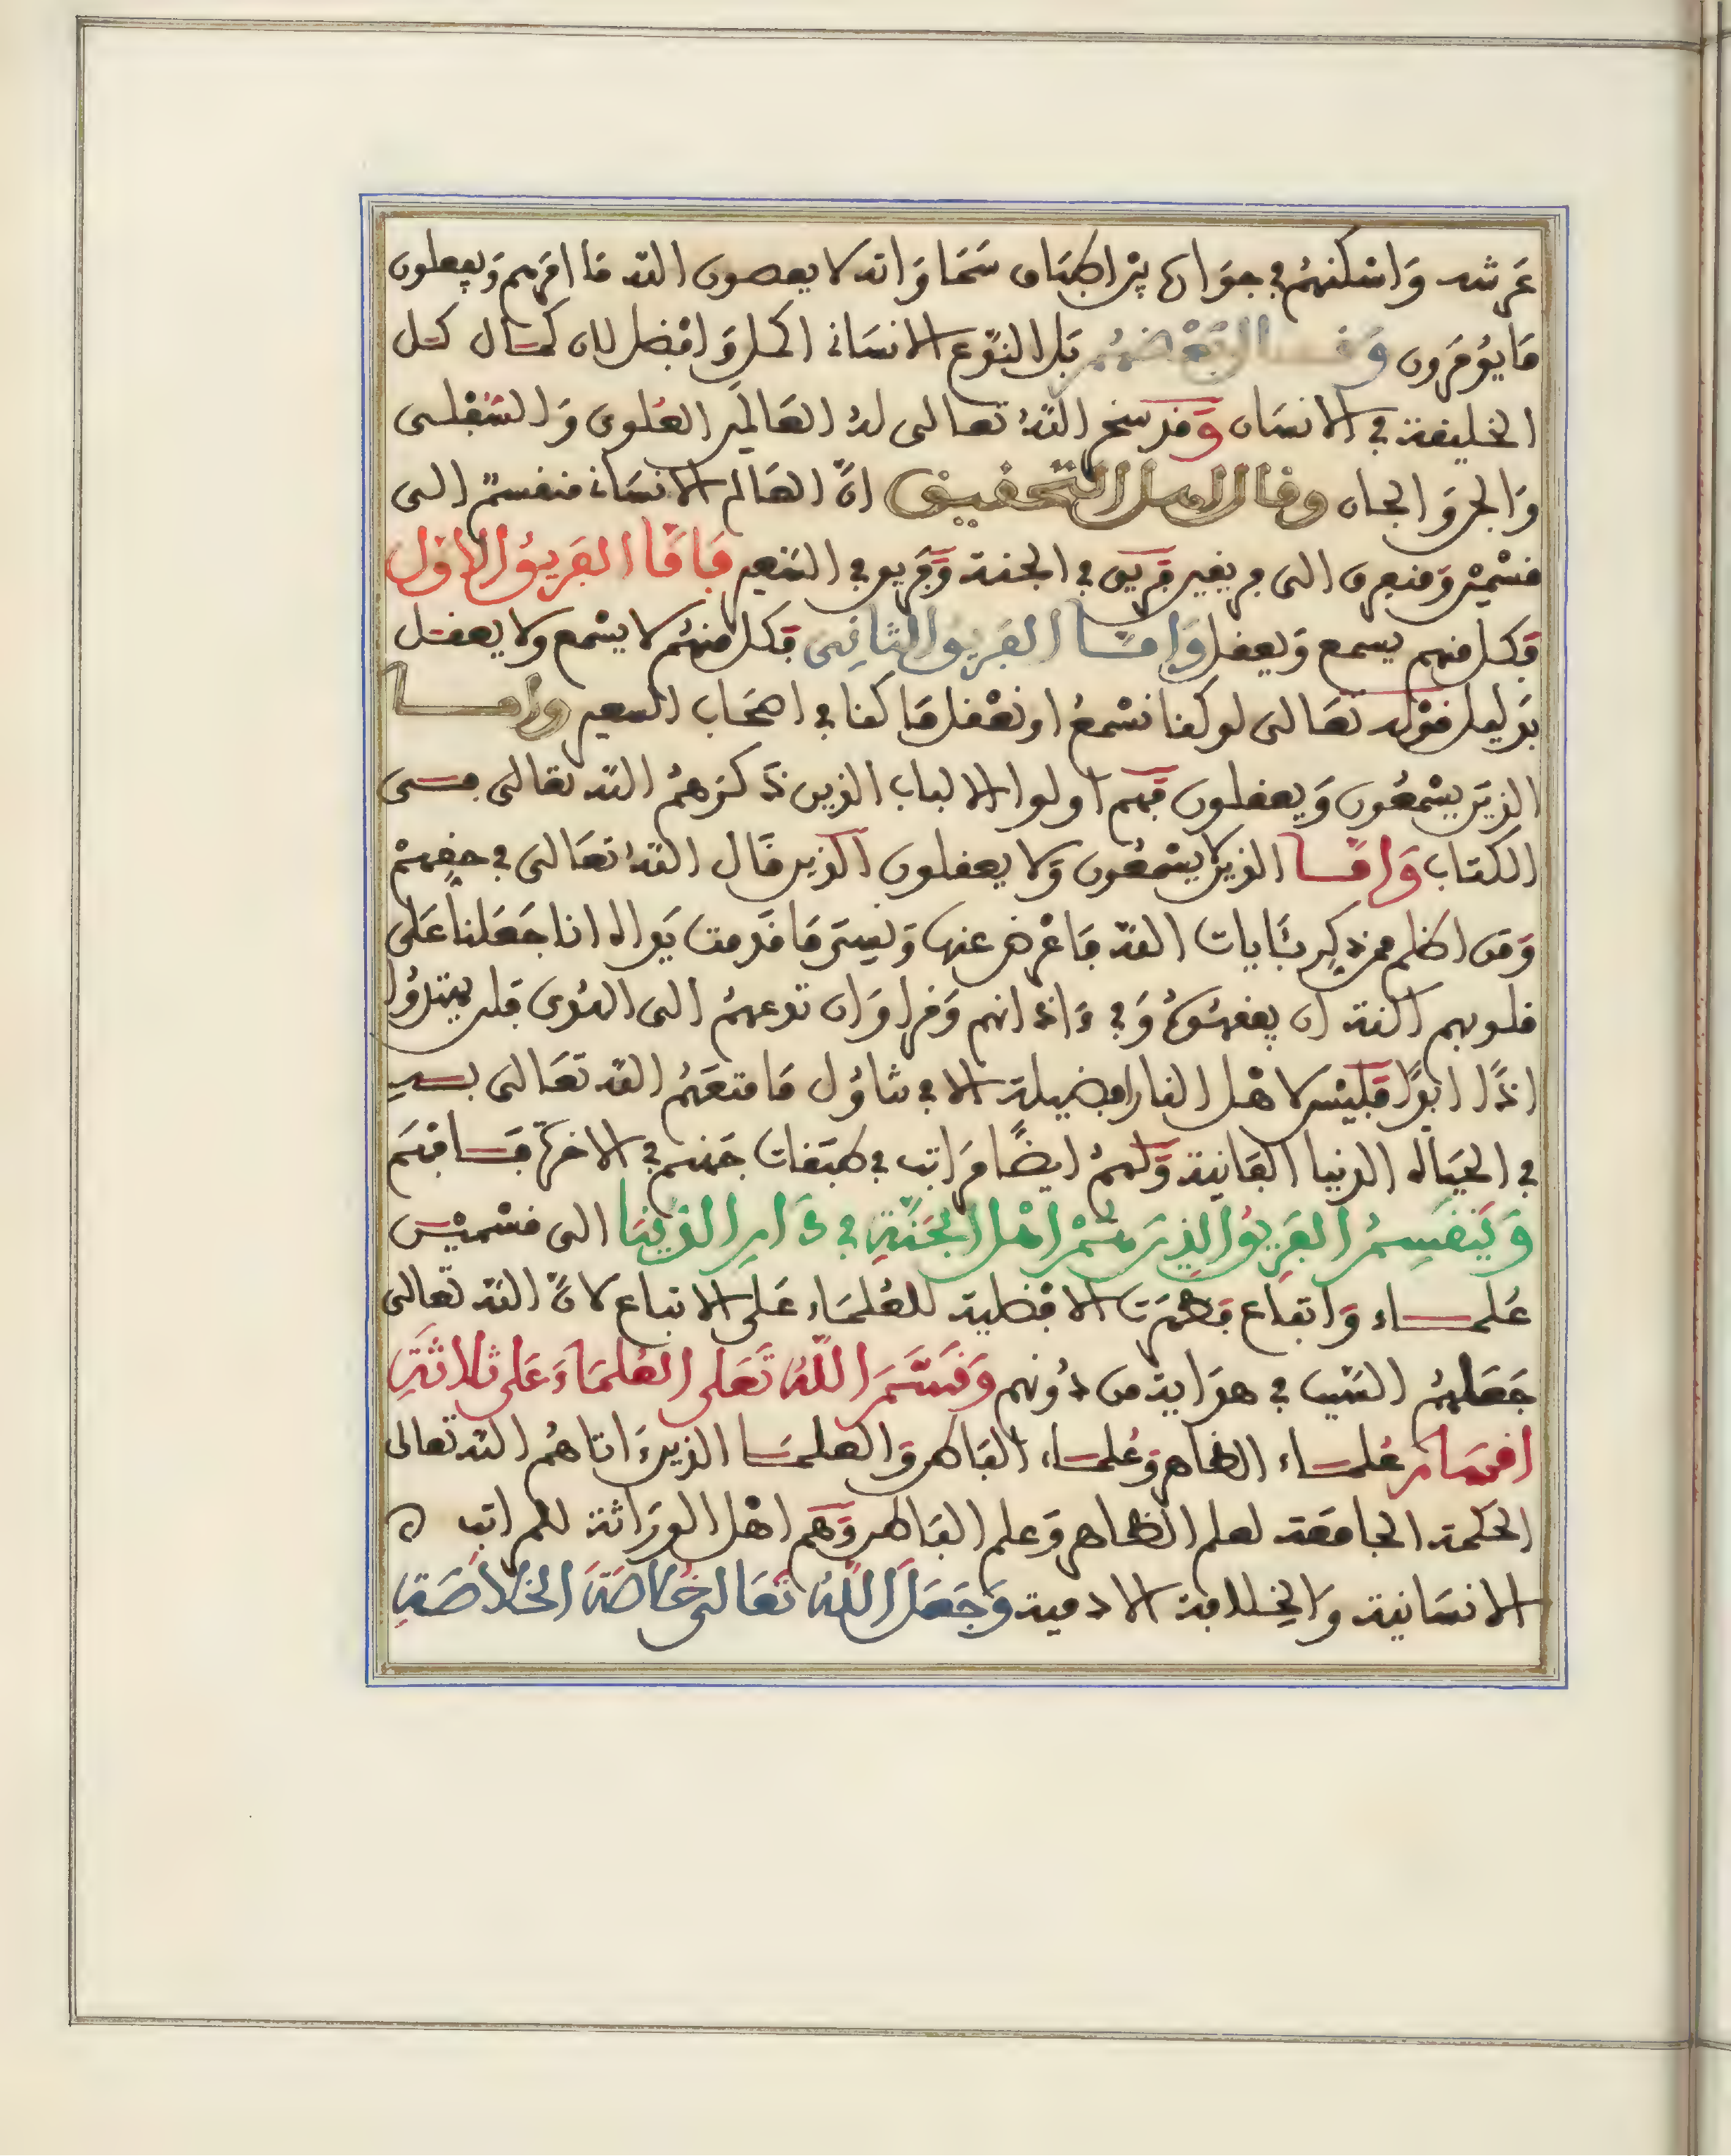 عرشه وَاسْكنهُم في جوَاره بيْن اطبَاق سَمَاوَاته لا يعصون الله مَا امرَهم وَيفعلون
مَا يؤمَرون وَقال بَعْضهُم بَل النّوع الانسَاني اكمل وَافضل لان كمال كل
الخليفة في الانسَان وَقد سخر اللهُ تعالى لهُ العَالمَين العُلوي وَالسّفْلى
وَالجن وَالجان وقال اهل التحقيق انّ العَالم الانسَاني منقسمٌ الى
قسْمَيْن وَمنعرف الى فريقين فَريق في الجنة وَفَريق في السّعير فَامَّا الفَريقُ الاوّل
فَكل منهم يسمع وَيعقل وَامّا الفَريق الثانِي فَكل منهُم لا يسْمع ولا يعقل
بدَليل قوْله تعَالى لو كنا نسْمعُ او نعْقل مَا كنا في اصْحَاب السعير وامَا
الذينَ يسْمَعُون وَيعقلون فَهم اولوا الالباب الذين ذَكرَهُم الله تعَالى في
الكتاب وَامّا الذين لا يسْمَعُون وَلا يعقلون الذين قَال اللهُ تعَالى في حقهمْ
وَمَن اظلم ممن ذكِر بئَايات الله فَاعْرض عنها وَنسِىَ مَا قَدمت يَداه انا جَعَلنا عَلى
قلوبهم اكنة ان يفقهُوهُ وَفي ءَاذانهم وَقرا وَان تدعهُم الى الهُدى فَلن يهتدُوا
اذًا ابدًا فَليْس لاهْل النار فضيلة الا في تنَاوُل مَا متعَهُم الله تعَالى به
في الحيَاة الدنيا الفَانية وَلهمُ ايضًا مرَاتب في طبَقات جَهنم في الاخرَة فَافهَم
وَيَنقَسِمُ الفَرِيقُ الذِينَ هُمْ اهْل الجَنّةِ في دَارِ الدّنْيَا الى قسْمَيْن
عُلماء وَاتباع فَظهرَت الافْضلية للعُلمَاء عَلى الاتباع لانّ الله تعَالى
جَعَلهُم السّبب في هدَاية من دُونهم وَقَسَّمَ اللّهُ تَعَلى العُلمَاءَ عَلى ثلاثَةِ
اقسَام عُلماء الظاهر وَعُلماء البَاطن وَالعلمَا الذين ءَاتاهُم الله تعَالى
الحكمة الجامعَة لعلم الظاهر وَعلم البَاطن وَهم اهْل الورَاثة للمراتب ه
الانسَانية وَالخِلافة الادمية وَجَعَلَ اللّهُ تعَالى خاصَةَ الخلاصَةِ